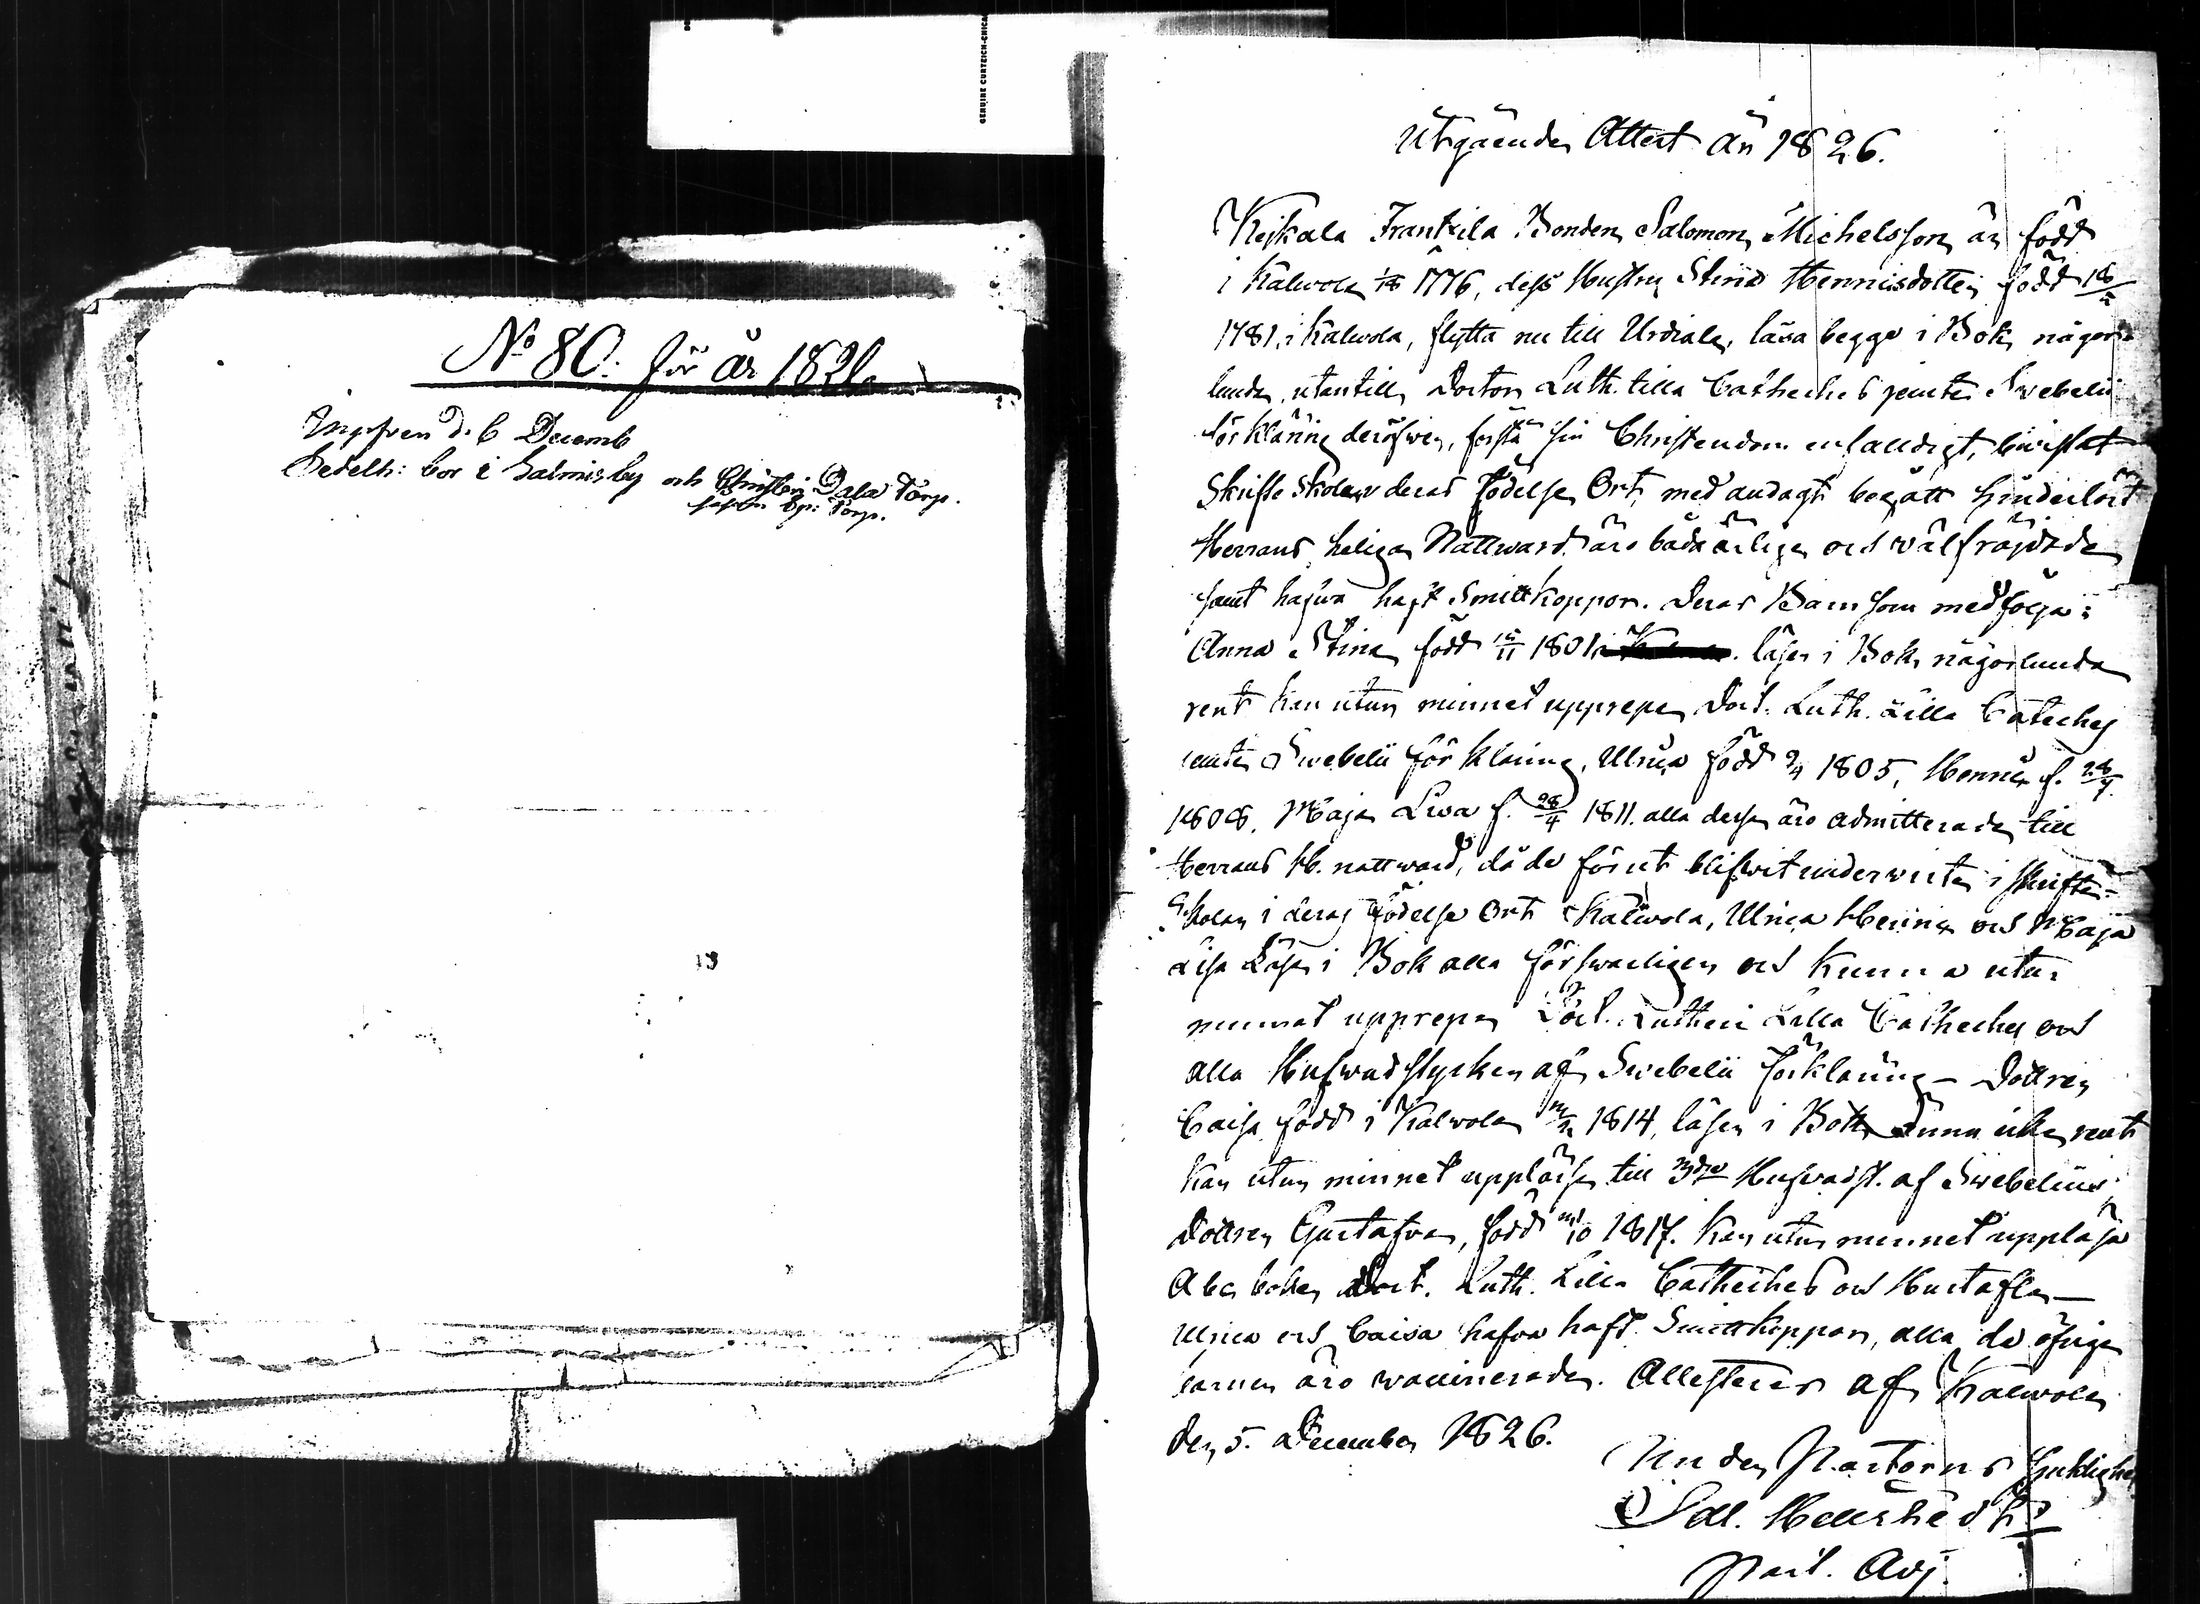 GENUINE CURTEICH-CHICA
No 80. för år 1826
d. 6 Decemb
bor i Salmis by och Dala Torp.
Torp.
Utgående Attest år 1826.
Keikala Frantsila Bonden Salomon Michelsson är född
i Kalwola 1776, dess Hustru Stina Hennicsdotter född 18/
1781, i Kalwola, flytta nu till Urdiala, läsa begge i Bok någor-
lunda, utantill Doctor Luth. lilla Catheches jemte Swebelii
förklaring deröfwer, förstå sin Christendom enfalldigt, biwistat
Skrifte Skolan deras födelse Ort, med andagt begått hinderlöst
Herrans heliga Nattward, äro båda ärliga och wälfräjdade
samt hafwa haft Smittkoppor. Deras Barn som medfölja:
Anna Stina född /11 1801, läser i Bok någorlunda
rent kan utur minnet upprepa Doct. Luth. Lilla Cateches
jemte Swebelii förklaring, Ulrica född 1805, Henrica f. 28/
1808, Maja Lisa f. 28/4 1811. alla dessa äro admitterade till
Herrans H. nattward, då de förut blifwit underwista i Skrifte-
Skolan i deras födelse Ort Kalwola, Ulrica Henrica och Maja
Lisa Läsa i Bok alla förswarligen och kunna utur
minnet upprepa Doct. Lutheri Lilla Catheches och
alla Hufwudstycken af Swebelii förklaring – Dottren
Caisa född i Kalwola 1814, läser i Bok ännu icke rent
kan utur minnet uppläsa till 3dje Hufvudst. af Swebelius
Dottren Gustafva, född /10 1817. kan utur minnet uppläsa
Abc boken Doct. Luth. Lilla Catheches och Hustaflan –
Ulrica och Caisa hafva haft Smittkoppor, alla de öfriga
barnen äro waccinerade. Attesteras af Kalwola
den 5. December 1826.
Under Pastorns Sjuklighet
Past. Adj.